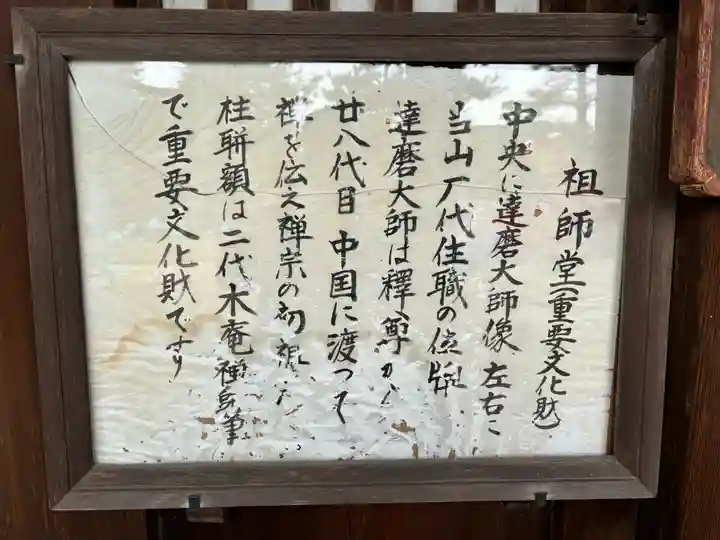 祖師堂(重要文化財
中央に達磨大師像 左右に
当山 代住職の位牌
達磨大師は釋尊から
廿八代目 中国に渡って
禅を伝え禅宗の初祖
柱聯額は二代木庵禅師筆
で重要文化財です